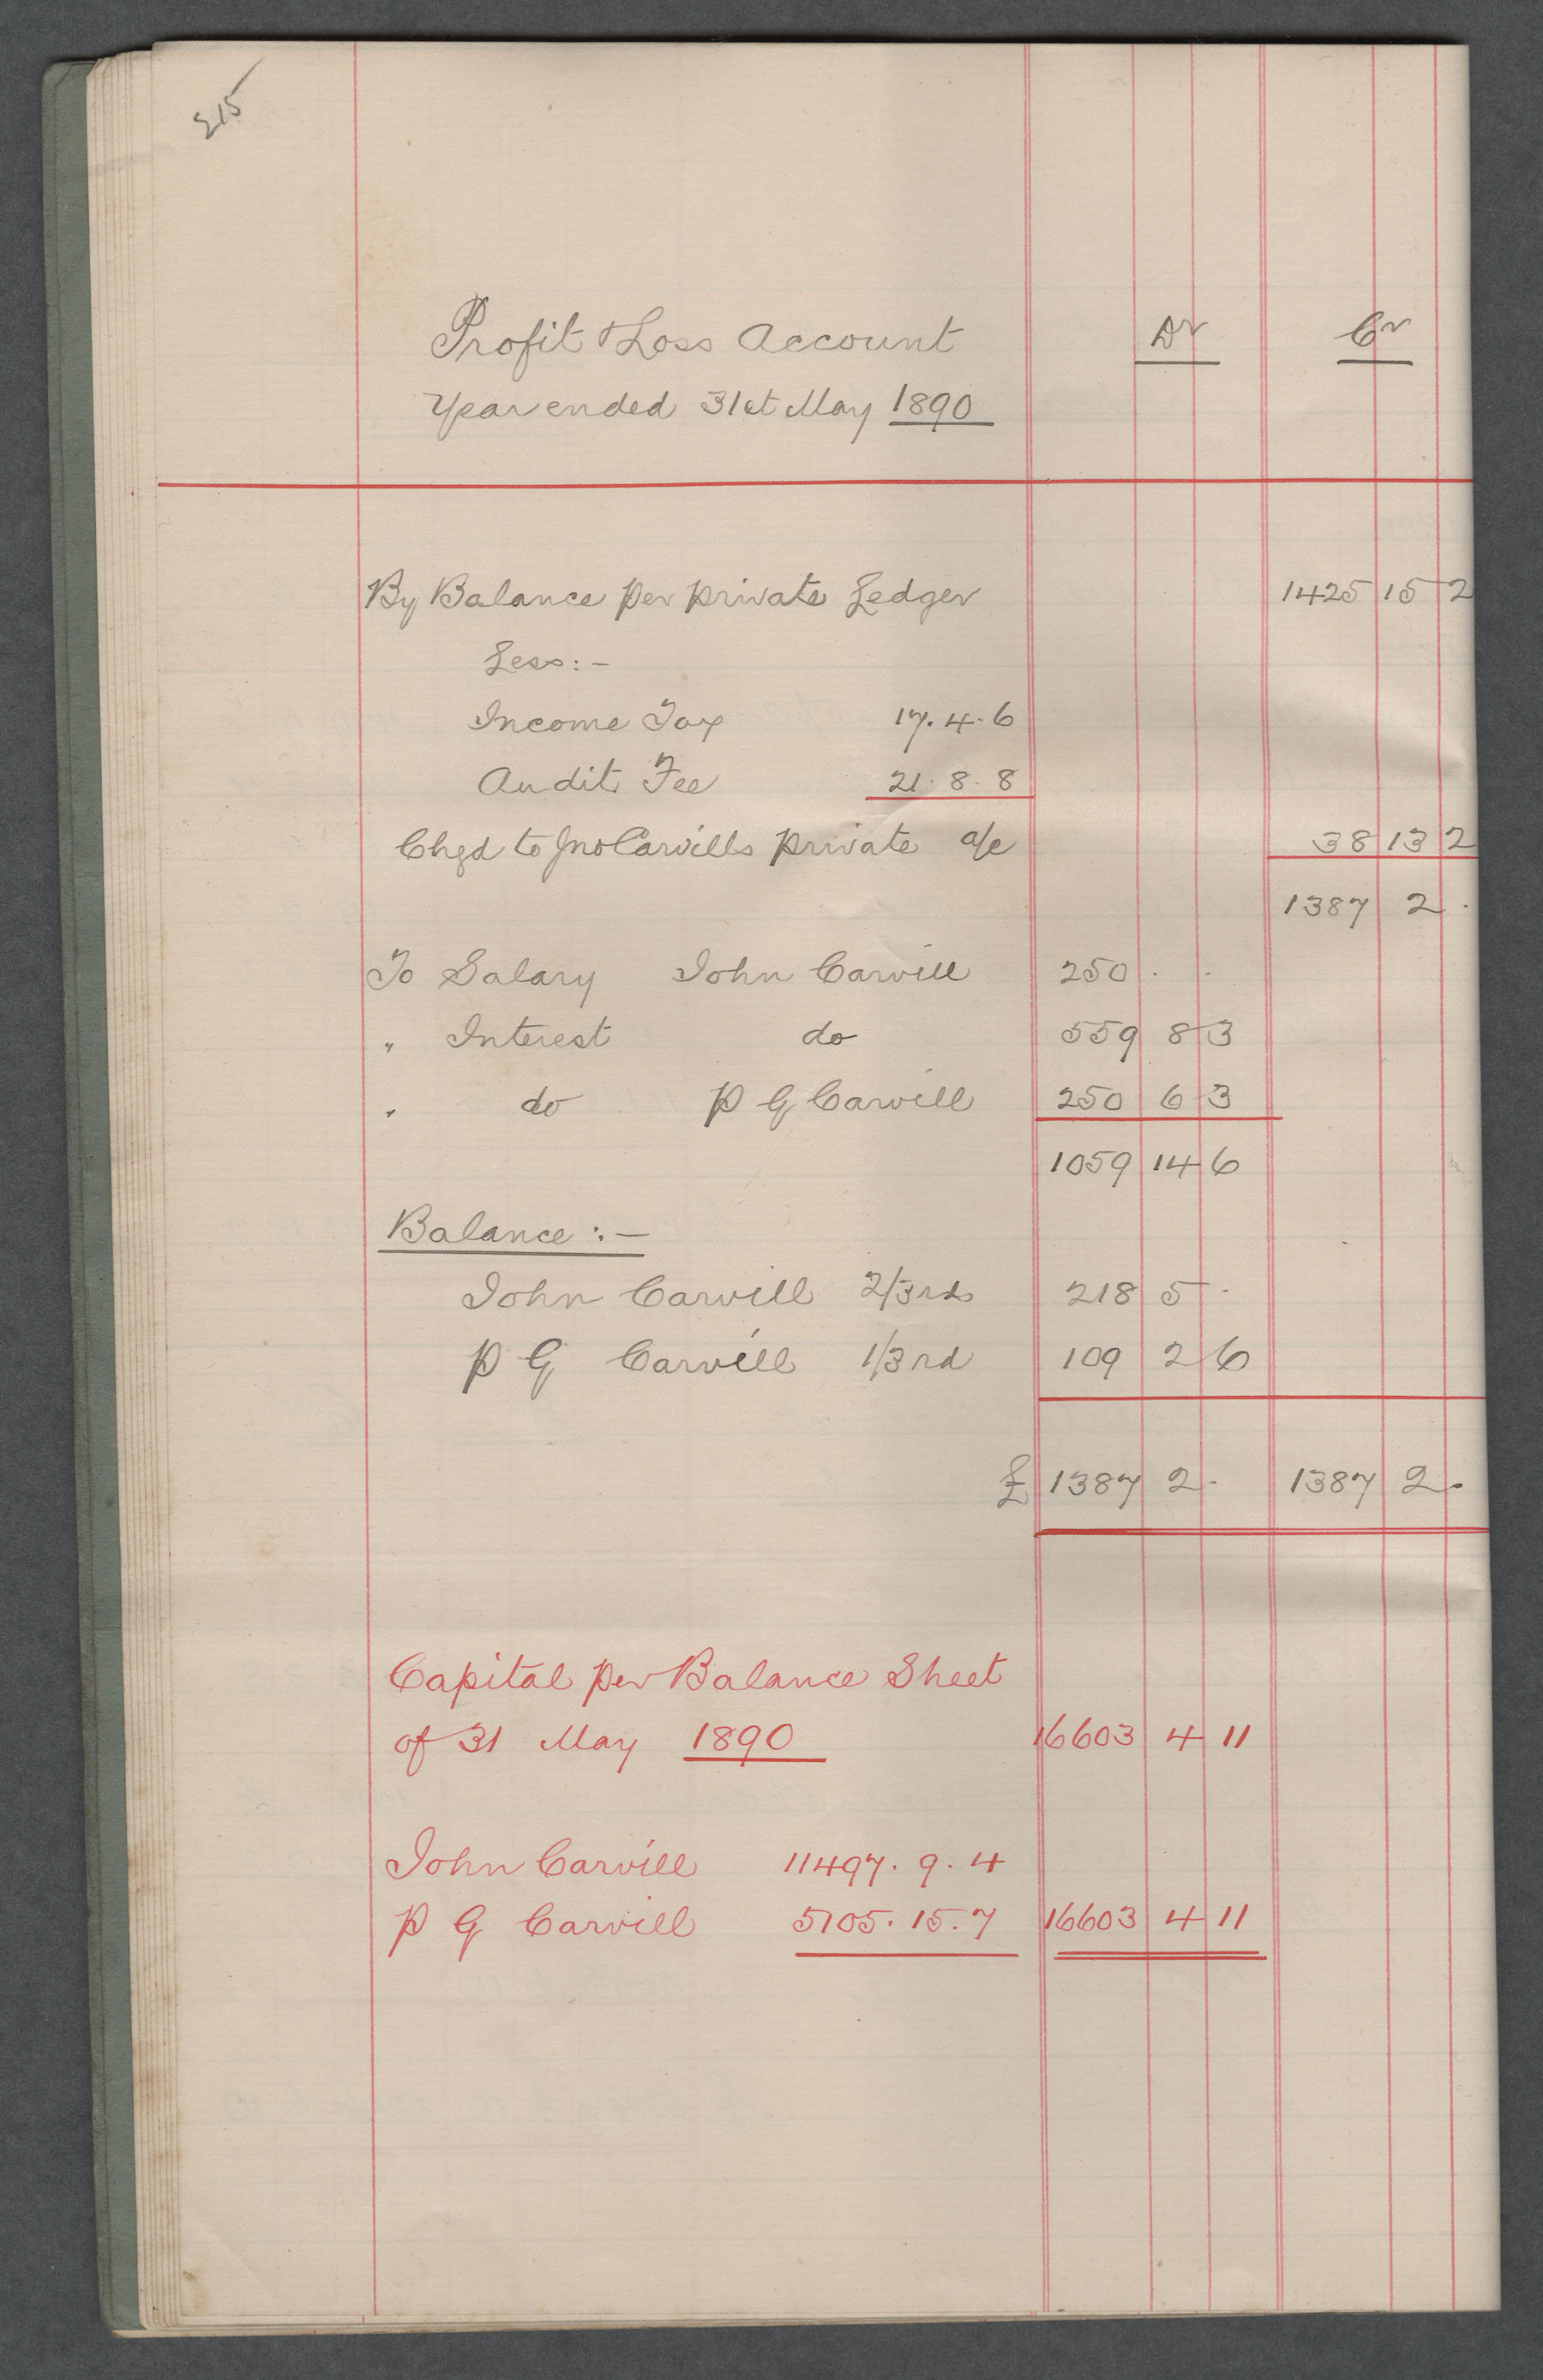 215
Profit & Loss Account Dr Cr
Year ended 31st May 1890
By Balance per private Ledger 1425 15 2
Less:-
Income Tax 17. 4. 6
Audit Fee 21. 8. 8
Chgd to Jno Carvills private a/c 38 13 2
1387 2 .
To Salary John Carvill 250 . .
" Interest do 559 8 3
" do P G Carvill 250 6 3
1059 14 6
Balance :-
John Carvill 2/3rds 218 5 .
P G Carvill 1/3rd 109 2 6
£ 1387 2 . 1387 2 .
Capital per Balance Sheet
of 31 May 1890 16603 4 11
John Carvill 11497. 9. 4
P G Carvill 5105. 15. 7 16603 4 11